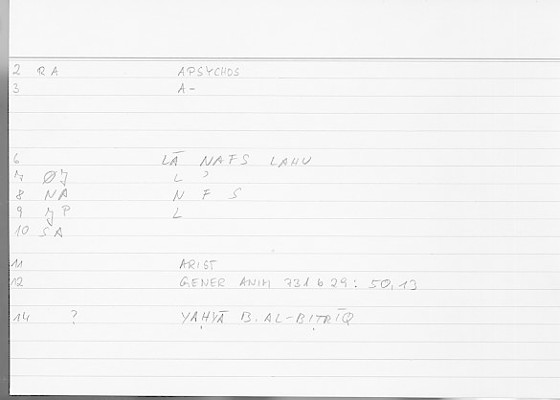 2 RA APSYCHOS
3 A-
6 LĀ NAFS LAHU
7 ØJ L ʾ
8 NA N F S
9 JP L
10 SA
11 ARIST
12 GENER ANIM 731 b 29 : 50,13
14 ? YAḤYĀ B. AL-BIṬRĪQ